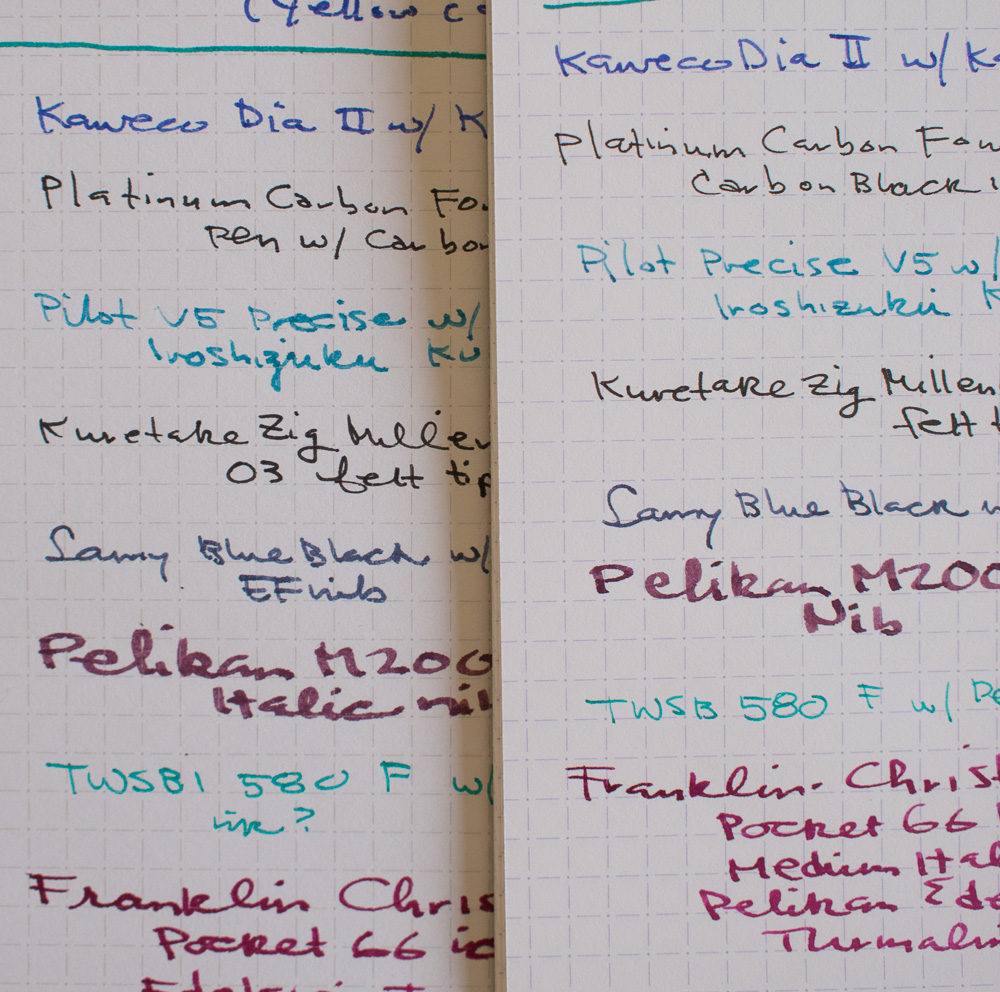 (Yellow c
Kaweco Dia II w/ K
Platinum Carbon Fo
Pen w/ Carbo
Pilot V5 Precise w/
Iroshizuku Ku
Kuretake Zig Millen
03 felt tip
Lamy Blue Black w/
EF nib
Pelikan M200
Italic nib
TWSBI 580 F w/
ink?
Franklin Chris
Pocket 66 ic
Kaweco Dia II w/ Ka
Platinum Carbon Foun
Carbon Black
Pilot Precise V5 w/
Iroshizuku K
Kuretake Zig Millen
felt t
Lamy Blue Black
Pelikan M200
Nib
TWSB 580 F w/ Pe
Franklin-Christ
Pocket 66
Medium Ital
Pelikan Ede
Turmalin